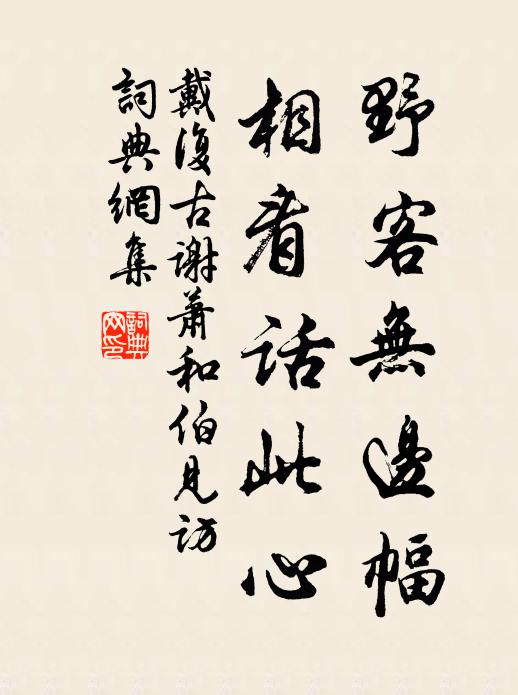 野客無邊幅
相看話此心
戴復古謝蕭和伯見訪
詞典網集
詞典網印